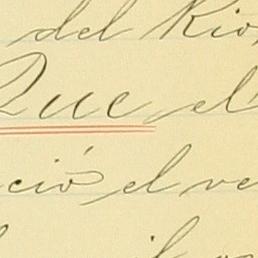 del Rio,
Que el
ció el ve